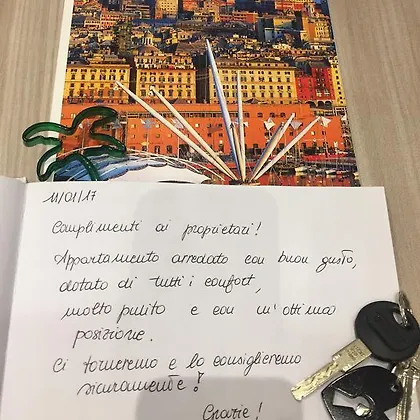 11/01/17
Complimenti ai proprietari!
Appartamento arredato con buon gusto,
dotato di tutti i confort,
molto pulito e con un'ottima
posizione.
Ci torneremo e lo consiglieremo
sicuramente!
Grazie!